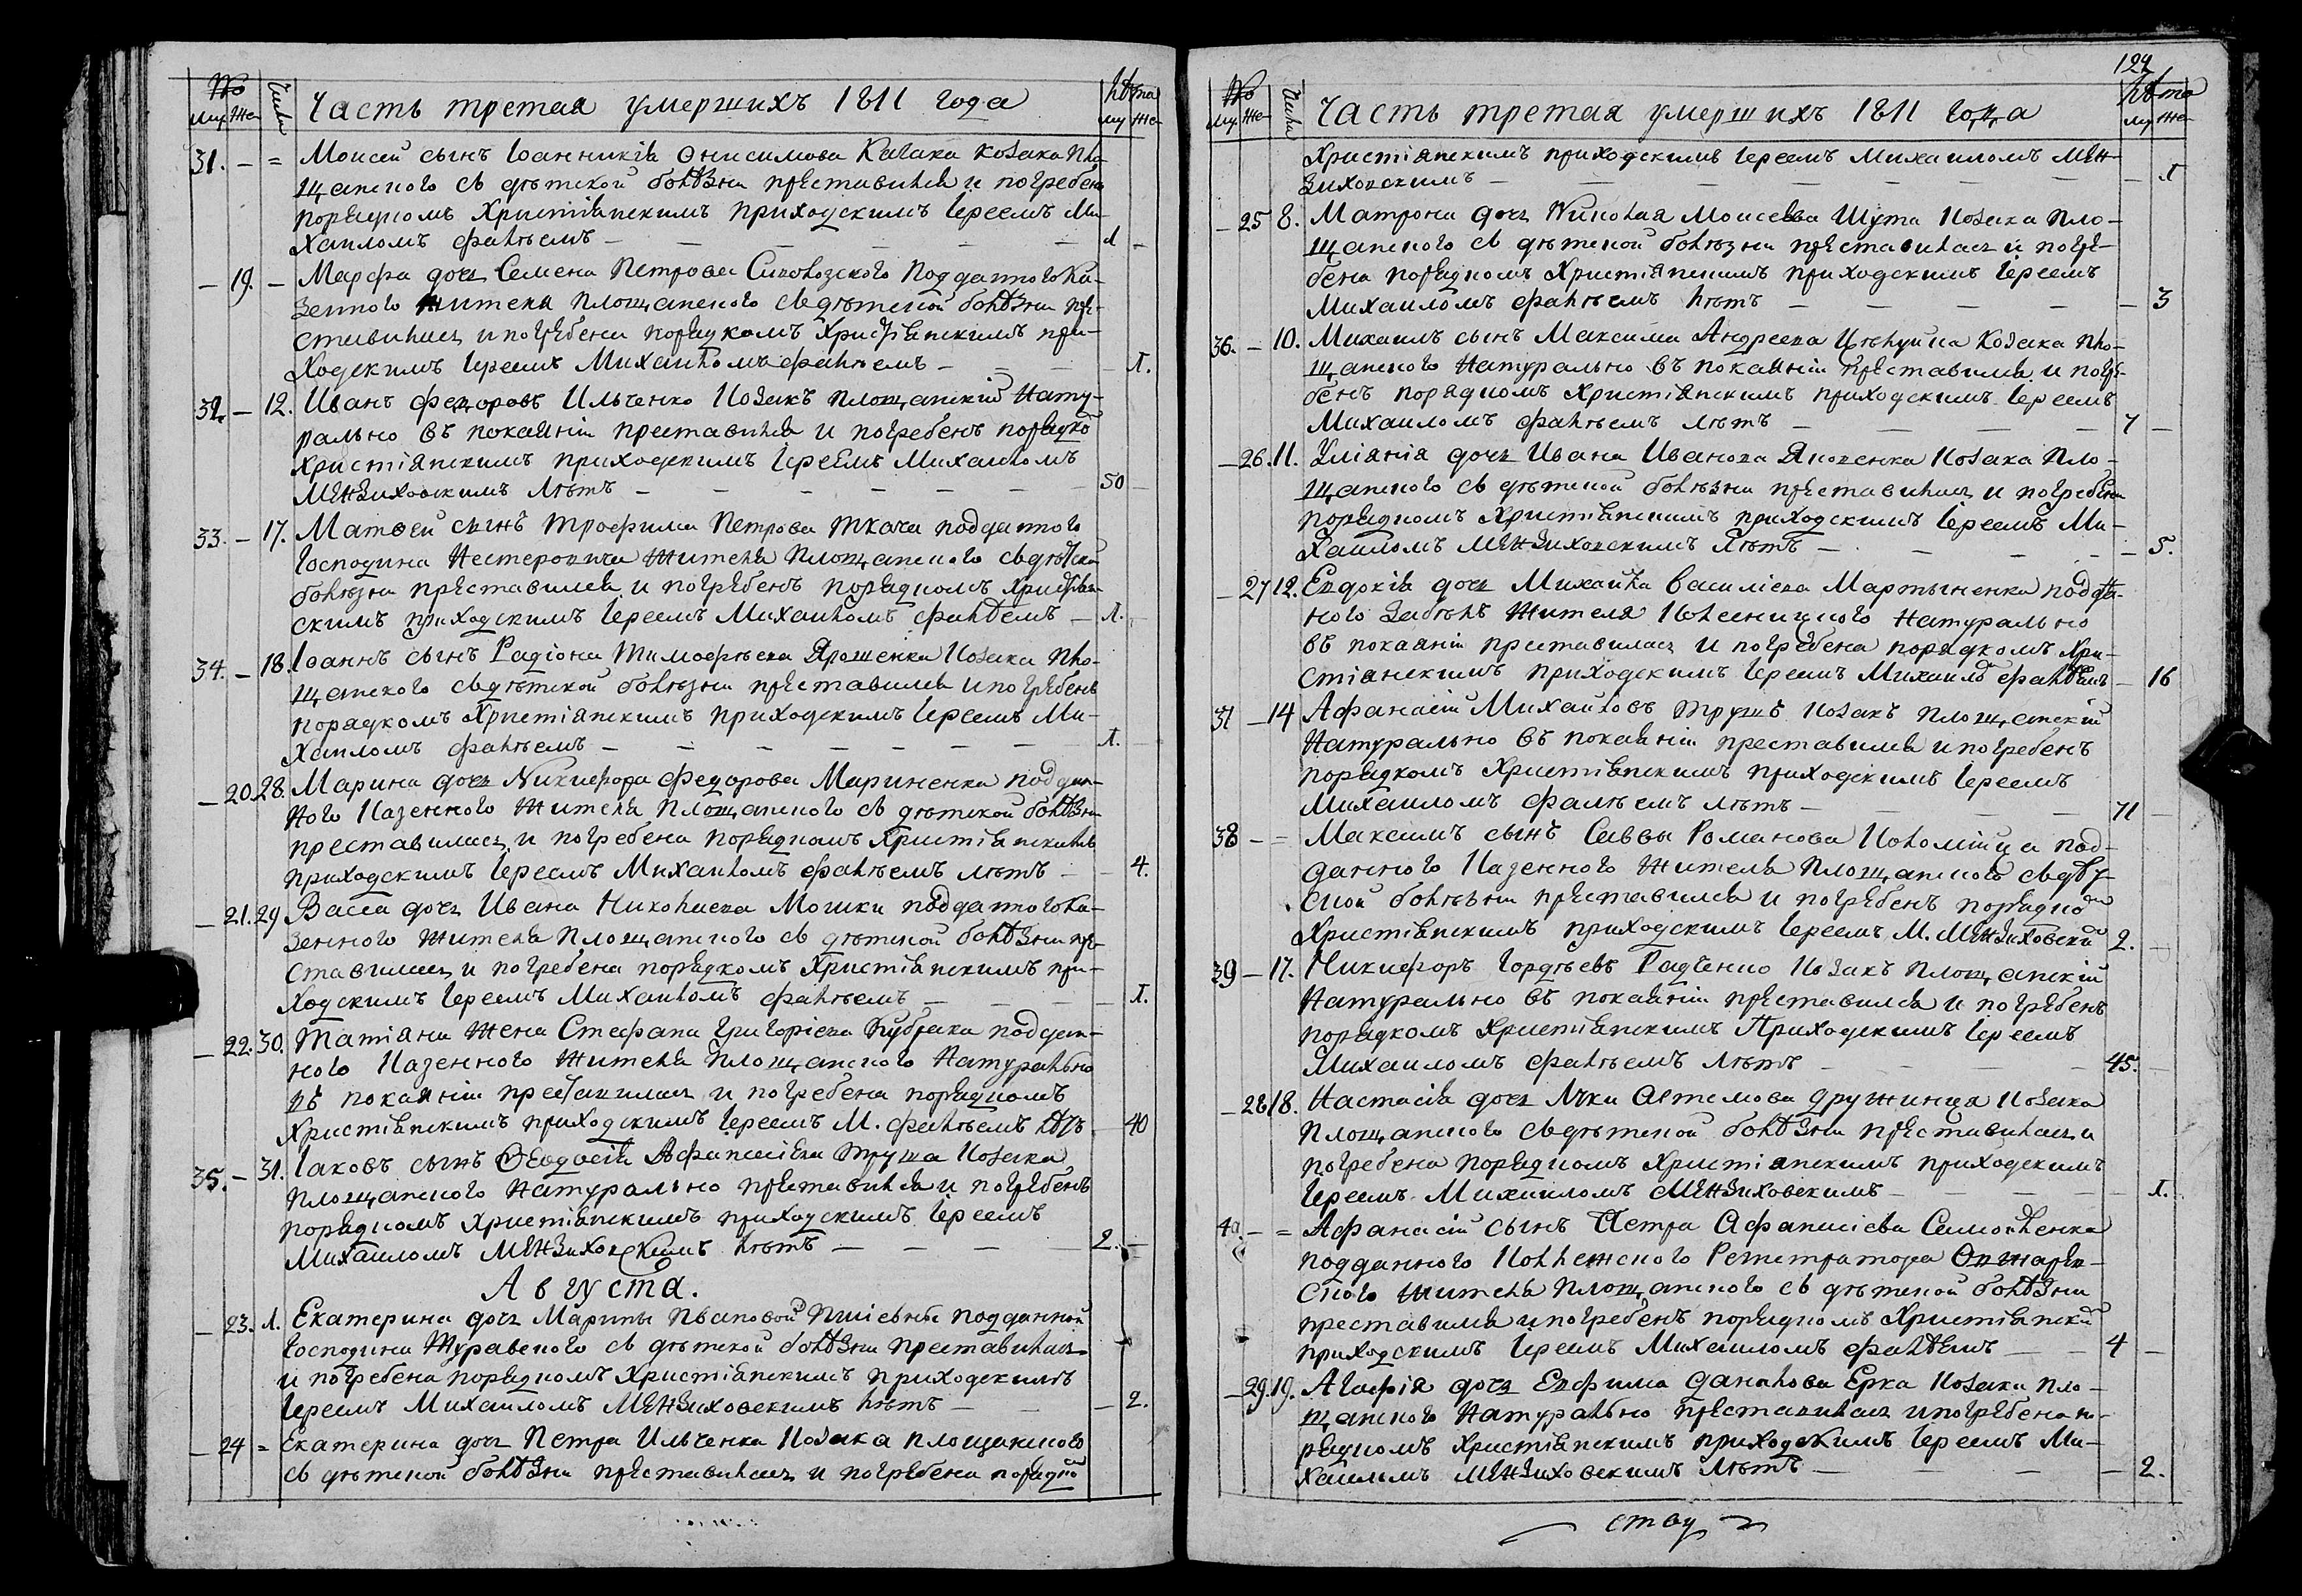 № Числа Часть третая умершихъ 1811 года лѣта
му же му же
31. – = Моисей сынъ Іоанникія Онисимова Качака козака пло-
щанского съ дѣтской болѣзни преставился и погребенъ
порядкомъ Христіянскимъ приходскимъ Іереемъ Ми-
хаиломъ фалѣемъ – 1 –
– 19. – Марфа дочь Семена Петрова подданного Ка-
зенного жителя площанского съ дѣтской болѣзни пре-
ставилась и погребена порядкомъ Христіянскимъ при-
ходскимъ Іереемъ Михаиломъ фалѣемъ – 1.
32. – 12. Иванъ федоровъ Ильченко козакъ площанскій нату-
рально въ покаяніи преставился и погребенъ порядко
христіянскимъ приходскимъ Іереемъ Михаиломъ
Мензиховскимъ лѣтъ – 50 –
33. – 17. Матвей сынъ трофима Петрова ткача подданного
Господина Нестеровича жителя площанского съ дѣтской
болѣзни преставился и погребенъ порядкомъ христіян-
скимъ приходскимъ Іереемъ Михаиломъ фалѣемъ – 1. –
34. – 18. Іоаннъ сынъ Радіона Тимофѣева Ярошенка козака пло-
щанского съ дѣтской болѣзни преставился и погребенъ
порядкомъ Христіянскимъ приходскимъ Іереемъ Ми-
хаиломъ фалѣемъ – 1. –
– 20. 28. Марина дочь Никифора федорова Мариненка поддан-
ного казенного жителя площанского съ дѣтской болѣзни
преставилась и погребена порядкомъ Христіянскимъ
приходскимъ Іереемъ Михаиломъ фалѣемъ лѣтъ – 4.
– 21. 29 Васса дочь Ивана Николаева Мошки подданного Ка-
зенного жителя площанского съ дѣтской болѣзни пре-
ставилась и погребена порядкомъ Христіянскимъ при-
ходскимъ Іереемъ Михаиломъ фалѣемъ – 1.
– 22. 30. Татіяна жена Стефана Григоріева поддан-
ного казенного жителя площанского натурально
въ покаяніи преставилась и погребена порядкомъ
Христіянскимъ приходскимъ Іереемъ М. фалѣемъ лѣтъ – 40
35. – 31. Іаковъ сынъ Феодосія Афанасіева труша козака
площанского натурально преставился и погребенъ
порядкомъ христіянскимъ приходскимъ Іереемъ
Михаиломъ Мензиховскимъ лѣтъ – 2. –
Августа.
– 23. 1. Екатерина дочь Марины Ивановой подданной
Господина Журавского съ дѣтской болѣзни преставилась
и погребена порядкомъ Христіянскимъ приходскимъ
Іереемъ Михаиломъ Мензиховскимъ лѣтъ – 2.
– 24 = Екатерина дочь Петра Ильченка козака площанского
съ дѣтской болѣзни преставилась и погребена порядко
№ Числа Часть третая умершихъ 1811 года лѣта
му же му же
Христіянскимъ приходскимъ Іереемъ Михаиломъ Мен-
зиховскимъ – 1
– 25 8. Матрона дочь Николая Моисеева Шута козака пло-
щанского съ дѣтской болѣзни преставилась и погре-
бена порядкомъ Христіянскимъ приходскимъ Іереемъ
Михаиломъ фалѣемъ лѣтъ – 3
36. – 10. Михаилъ сынъ Максима Андреева козака пло-
щанского натурально въ покаяніи преставился и погре-
бенъ порядкомъ Христіянскимъ приходскимъ Іереемъ
Михаиломъ фалѣемъ лѣтъ – 7 –
– 26. 11. Уліянія дочь Ивана Иванова Яковенка козака пло-
щанского съ дѣтской болѣзни преставилась и погребена
порядкомъ Христіянскимъ приходскимъ Іереемъ Ми-
хаиломъ Мензиховскимъ лѣтъ – 5.
– 27 12. Евдокія дочь Михаила Василіева Мартыненка подда-
ного жителя натурально
въ покаяніи преставилась и погребена порядкомъ хри-
стіянскимъ приходскимъ Іереемъ Михаило фалѣемъ – 16
37 – 14 Афанасій Михайловъ трушъ козакъ площанскій
натурально въ покаяніи преставился и погребенъ
порядкомъ Христіянскимъ приходскимъ Іереемъ
Михаиломъ фалѣемъ лѣтъ – 71 –
38 – = Максимъ сынъ Саввы Романова Коломійца под-
данного казенного жителя площанского съ дѣт-
ской болѣзни преставился и погребенъ порядко
Христіянскимъ приходскимъ Іереемъ М. Мензиховски 2. –
39 – 17. Никифоръ Гордѣевъ Радченко козакъ площанскій
натурально въ покаяніи преставился и погребенъ
порядкомъ Христіянскимъ приходскимъ Іереемъ
Михаиломъ фалѣемъ лѣтъ – 45. –
– 28 18. Настасія дочь Луки Артемова дружинца козака
площанского съ дѣтской болѣзни преставилась и
погребена порядкомъ Христіянскимъ приходскимъ
Іереемъ Михаиломъ Мензиховскимъ – 1.
40. – = Афанасій сынъ Петра Афанасіева Самойленка
подданного Коллежского Регистратора
ского жителя площанского съ дѣтской болѣзни
преставился и погребенъ порядкомъ Христіянски
приходскимъ Іереемъ Михаиломъ фалѣемъ – 4 –
– 29. 19. Агафія дочь Евфима Данилова Ерка козака пло-
щанского натурально преставилась и погребена по-
рядкомъ христіянскимъ приходскимъ Іереемъ Ми-
хаиломъ Мензиховскимъ лѣтъ – 2.